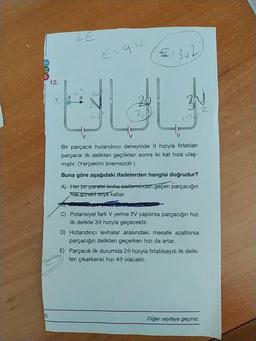 2E
12.
Bir parçacık hızlandırıcı deneyinde ϑ hızıyla fırlatılan
parçacık ilk delikten geçtikten sonra iki kat hıza ulaş-
mıştır. (Yerçekimi önemsizdir.)
Buna göre aşağıdaki ifadelerden hangisi doğrudur?
A) Her bir paralel levha sisteminden geçen parçacığın
hızı sürekli ikiye katlar.
C) Potansiyel fark V yerine 2V yapılırsa parçacığın hızı
ilk delikte 3ϑ hızıyla geçecektir.
D) Hızlandırıcı levhalar arasındaki mesafe azaltılırsa
parçacığın delikten geçerken hızı da artar.
E) Parçacık ilk durumda 2ϑ hızıyla fırlatılsaydı ilk delik-
ten çıkarkenki hızı 4ϑ olacaktı.
5
Diğer sayfaya geçiniz.